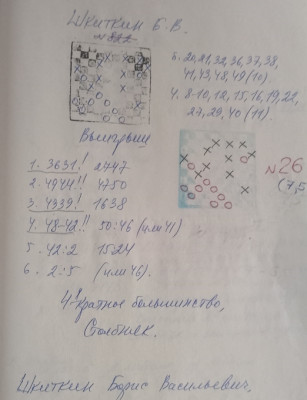 Шкиткин Б.В.
Б. 20,21,32,36,37,38,
41,43,48,49 (10)
Ч. 8-10,12,15,16,19,22,
27,29,40 (11)
Выигрыш
№26
1. 3631! 2747
2. 4944!! 4750
3. 4339! 1638
4. 48-42!! 50:46 (или 41)
5. 42:2 1524
6. 2:5 (или 46).
4х кратное большинство,
Столбняк.
Шкиткин Борис Васильевич.